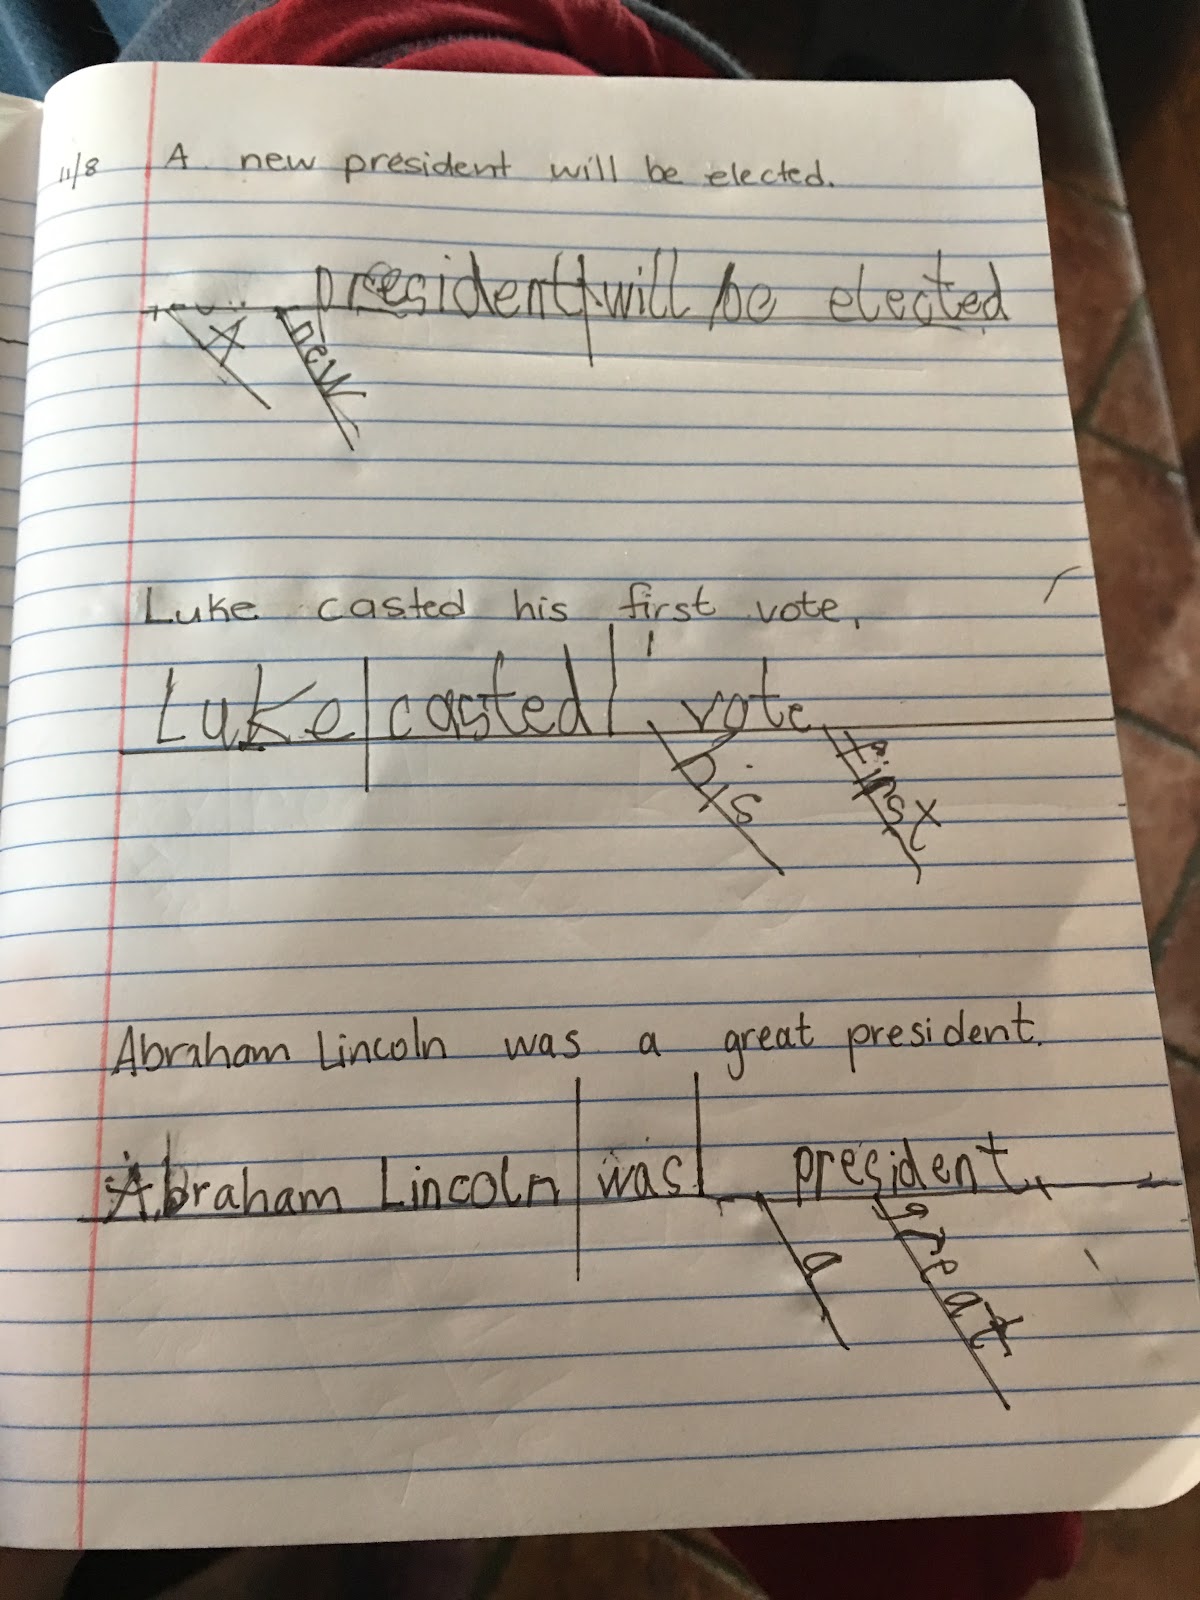 11/8 A new president will be elected.
president will be elected
A new
Luke casted his first vote.
Luke casted vote
his first
Abraham Lincoln was a great president.
Abraham Lincoln was president.
a great